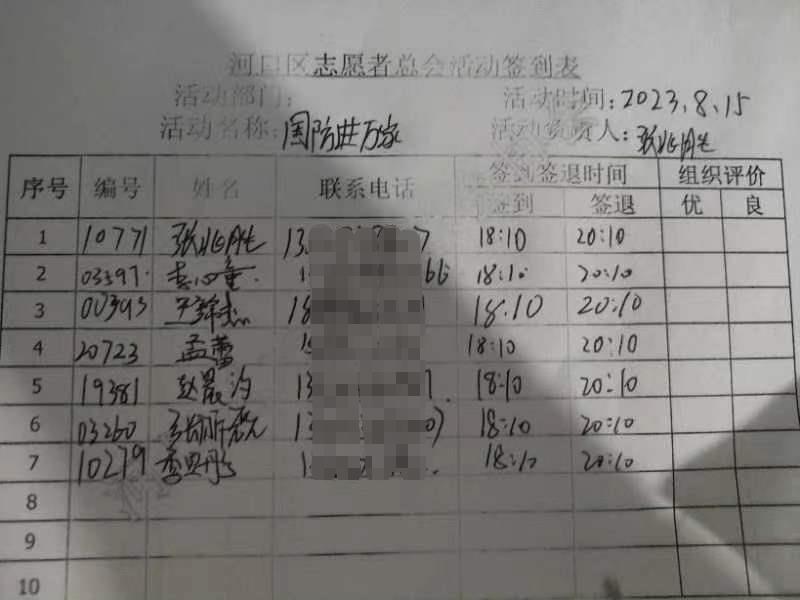 河口区志愿者总会活动签到表
活动部门: 活动时间:2023.8.15
活动名称:国防进万家 活动负责人:张兆胜
序号 编号 姓名 联系电话 签到签退时间 组织评价
签到 签退 优 良
1 10771 张兆胜 13 7 18:10 20:10
2 03597 1 66 18:10 20:10
3 00393 18 18:10 20:10
4 20723 孟蕾 18:10 20:10
5 19381 赵晨汐 13 18:10 20:10
6 03260 13 18:10 20:10
7 10279 18:10 20:10
8
9
10